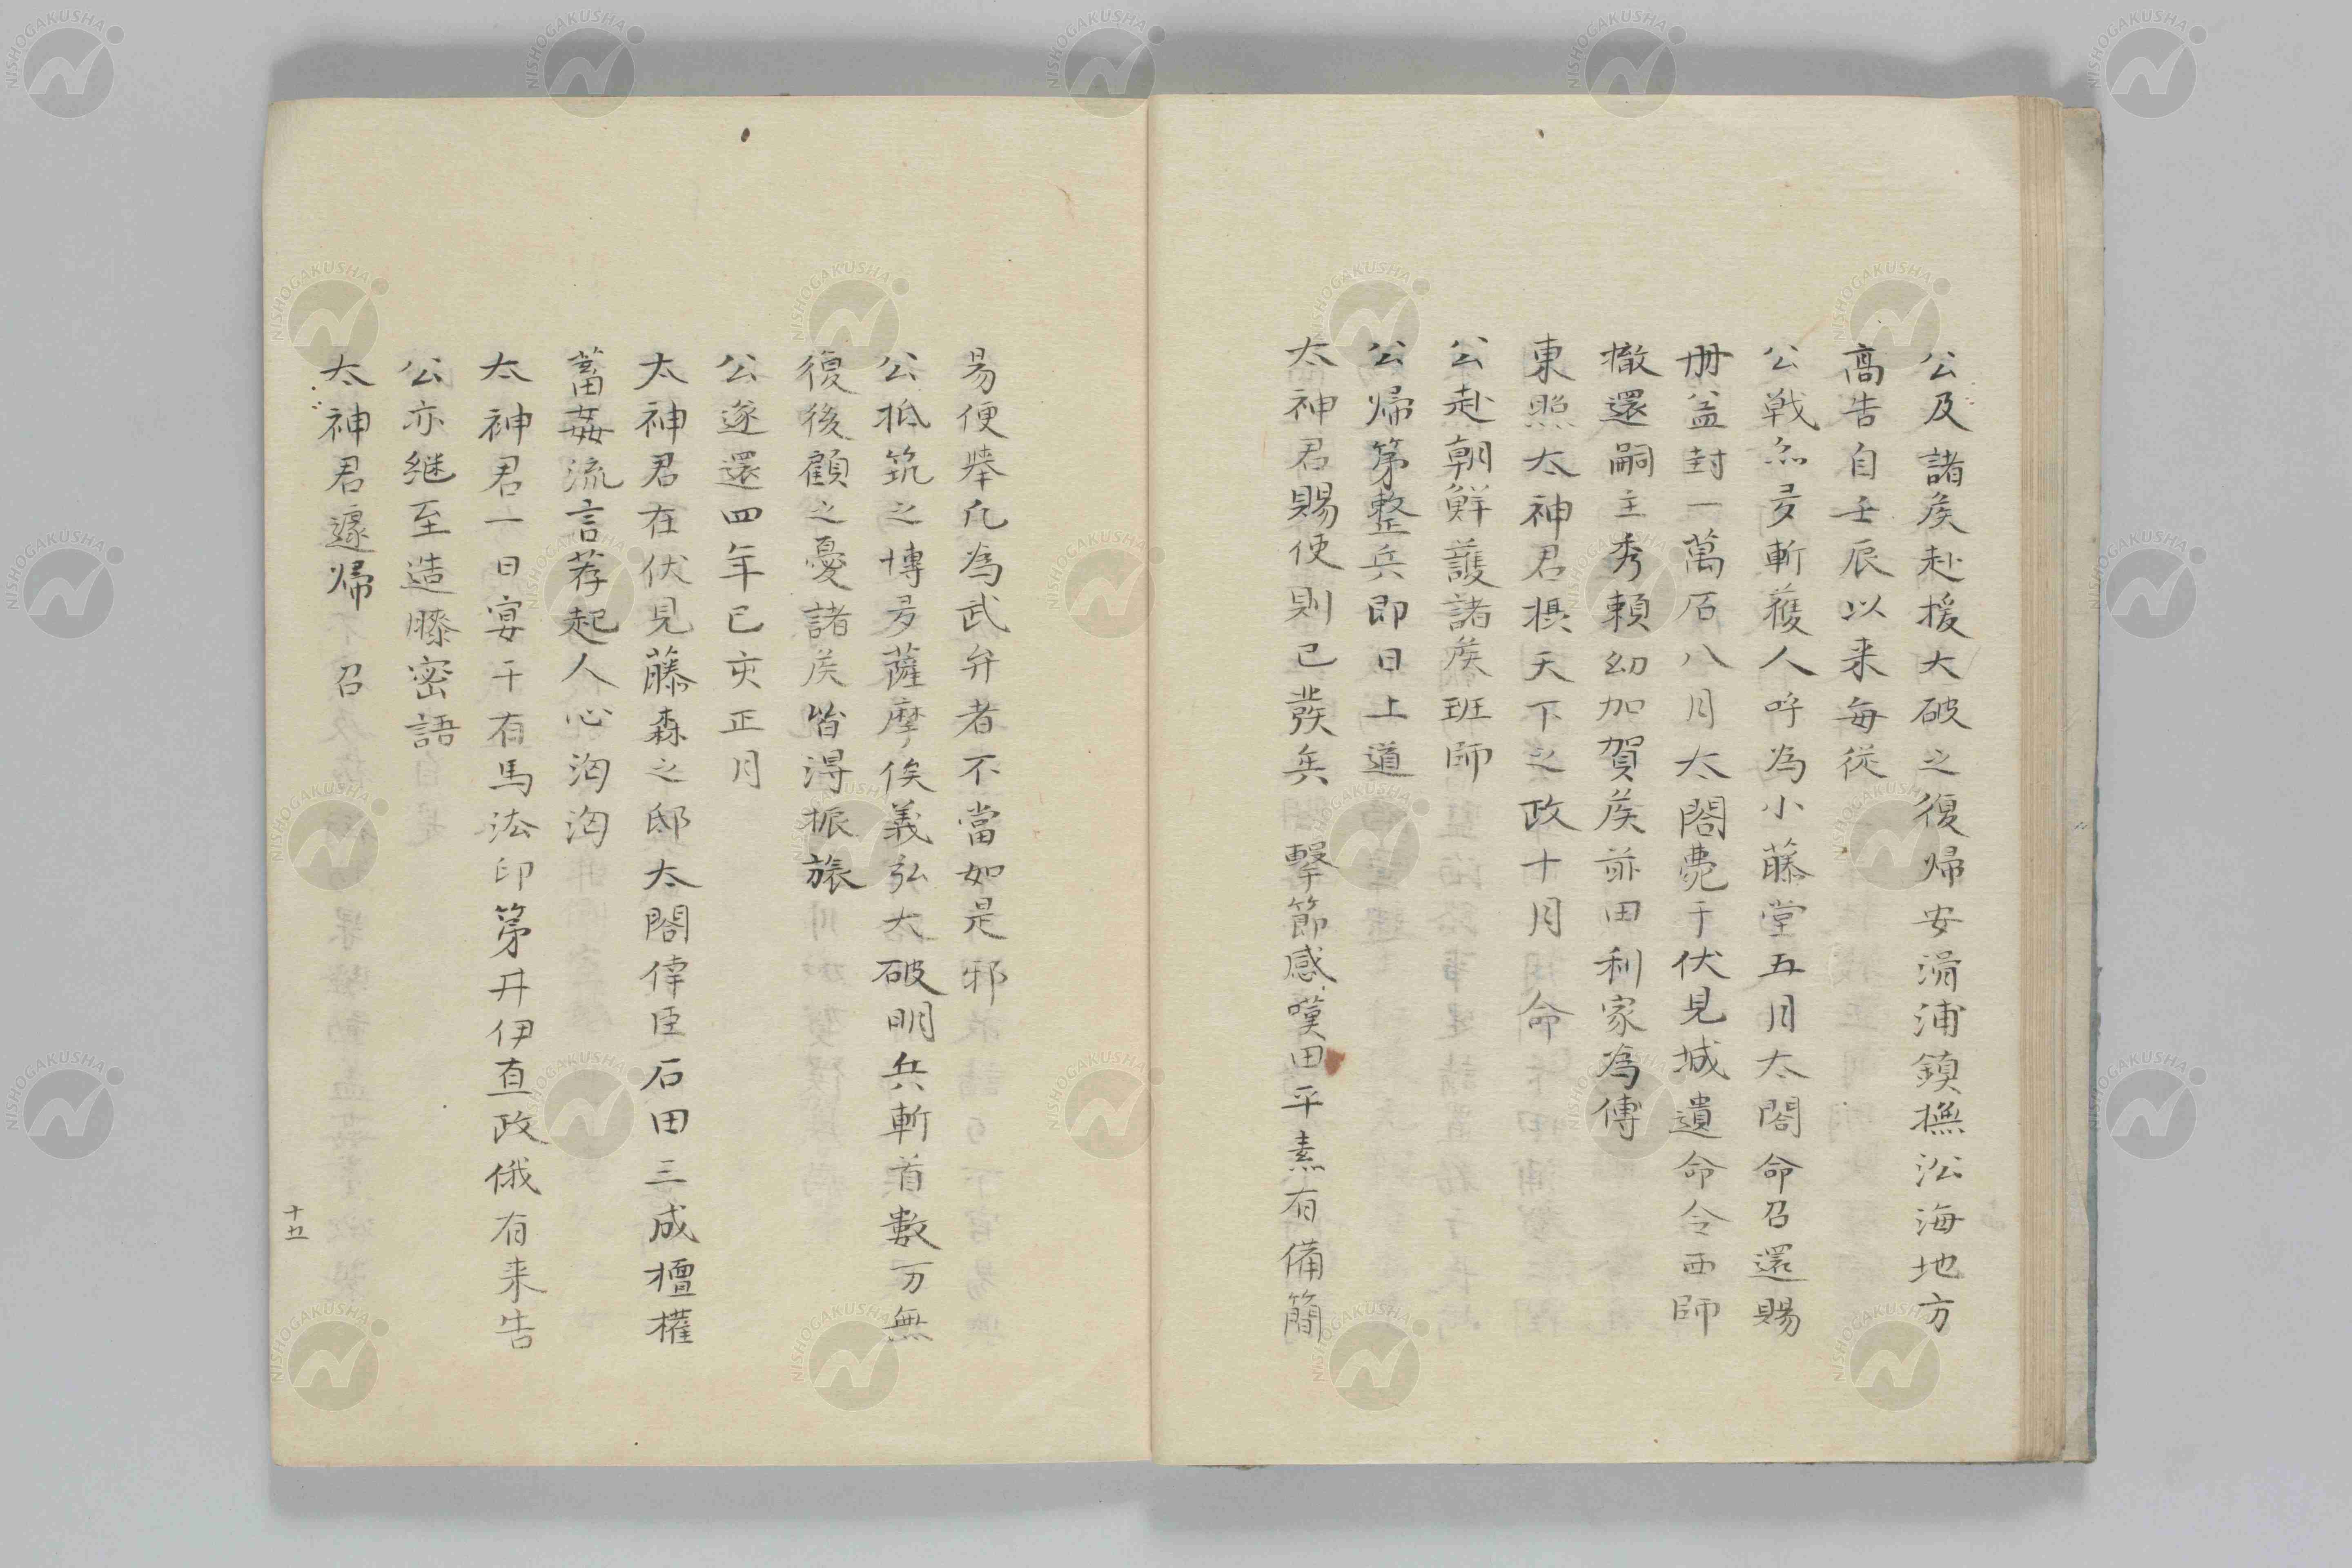 公及諸矦赴援大破之復帰安滑浦鎮撫沿海地方
髙告自壬辰以来毎従
公戦亦多斬獲人呼為小藤堂五月太閤命召還賜
冊益封一萬石八月太閤薨于伏見城遺命令西師
撤還嗣主秀頼幼加賀矦前田利家為傅
東照太神君摂天下之政十月命
公赴朝鮮護諸矦班師
公帰第整兵即日上道
太神君賜使則已發兵 擊節感嘆田平素有備簡
易便舉凡為武弁者不當如是邪
公抵筑之博多薩摩侯義弘大破明兵斬首數万無
復後顧之憂諸矦皆得振旅
公遂還四年已亥正月
太神君在伏見藤森之邸太閤倖臣石田三成擅權
蓄姦流言荐起人心洶洶
太神君一日宴于有馬法印第井伊直政俄有来告
公亦継至造膝密語
太神君遽帰 召
十五
NISHOGAKUSHA